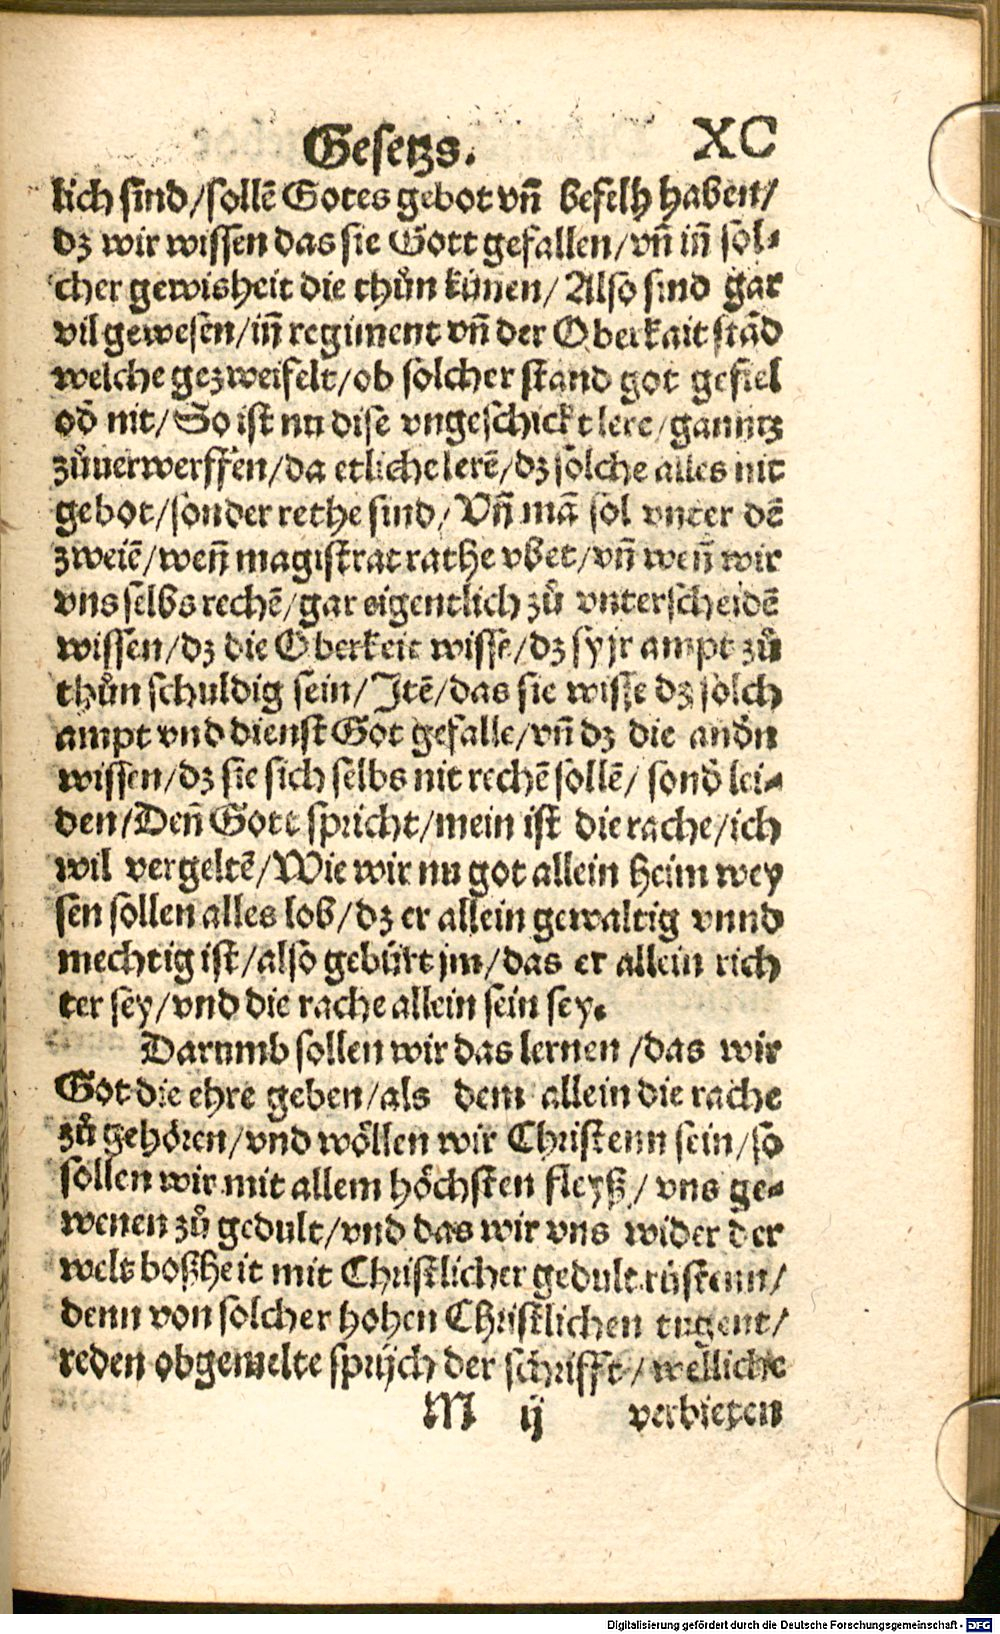 Gesetzs. XC
lich sind/sollē Gotes gebot vn̄ befelh haben/
dz wir wissen das sie Gott gefallen/vn̄ in̄ sol-
cher gewisheit die thůn künen/Also sind gar
vil gewesen/in̄ regiment vn̄ der Oberkait stād
welche gezweifelt/ob solcher stand got gefiel
od̄ nit/So ist nu dise vngeschickt lere/ganntz
zůuerwerffen/da etliche lerē/dz solche alles nit
gebot/sonder rethe sind/Vn̄ mā sol vnter dē
zweiē/wen̄ magistrat rathe vbet/vn̄ wen̄ wir
vns selbs rechē/gar eigentlich zů vnterscheidē
wissen/dz die Oberkeit wisse/dz syjr ampt zů
thůn schuldig sein/Itē/das sie wisse dz solch
ampt vnd dienst Got gefalle/vn̄ dz die and̄n
wissen/dz sie sich selbs nit rechē sollē/sond̄ lei-
den/Den̄ Gott spricht/mein ist die rache/ich
wil vergeltē/Wie wir nu got allein heim wey
sen sollen alles lob/dz er allein gewaltig vnnd
mechtig ist/also gebürt jm/das er allein rich
ter sey/vnd die rache allein sein sey.
Darumb sollen wir das lernen/das wir
Got die ehre geben/als dem allein die rache
zů gehören/vnd wöllen wir Christenn sein/so
sollen wir mit allem höchsten fleyß/vns ge-
wenen zů gedult/vnd das wir vns wider der
welt boßheit mit Christlicher gedult rüstenn/
denn von solcher hohen Christlichen tugent/
reden obgemelte sprüch der schrifft/welliche
M ij verbieten
Digitalisierung gefördert durch die Deutsche Forschungsgemeinschaft - DFG